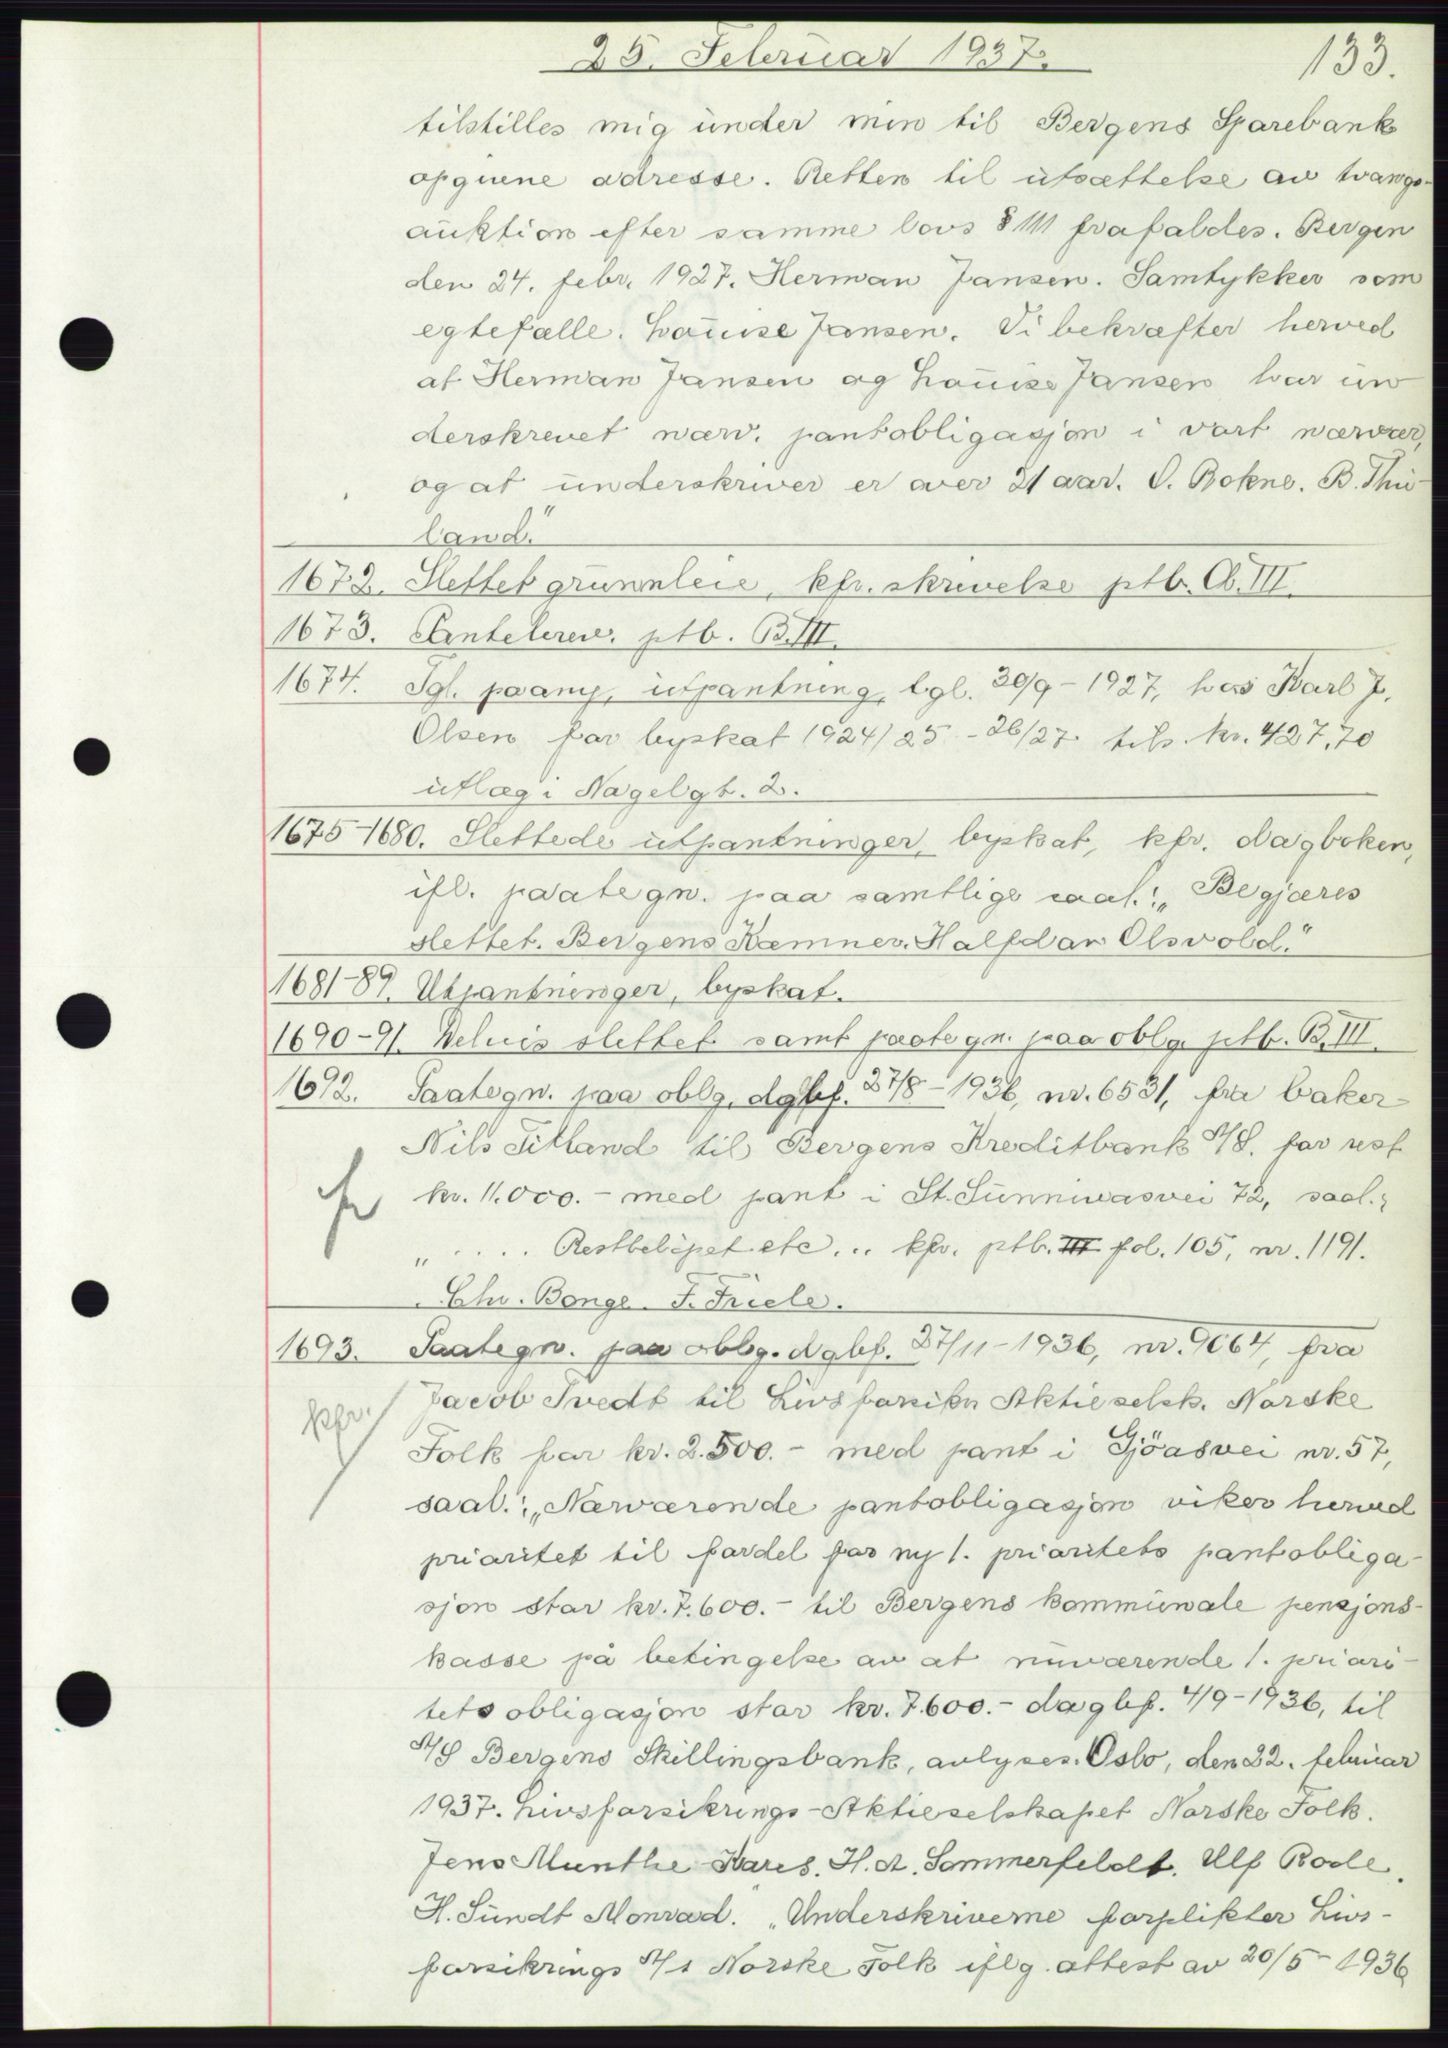 25. Februar 1937.
133.
tilstilles mig under min til Bergens Sparebank
opgivne adresse. Retten til utsættelse av tvangs-
auktion efter samme lovs § 111 frafaldes. Bergen
den 24. febr. 1927. Herman Jansen. Samtykker som
egtefælle. Louise Jansen. Vi bekræfter herved
at Herman Jansen og Louise Jansen har un
derskrevet nærv. pantobligasjon i vart nærvær,
og at underskriver er over 21 aar. O. Bokne. B. Thu-
land."
1672. Slettet grunnleie, kfr. skrivelse ptb. B. III.
1673. Panteherew. ptb. B. III.
1674. Tgl. paany, utpantning, tgl. 30/9 - 1927, hos Karl J.
Olsen for byskat 1924/25 - 26/27 tils. kr. 427,70
utlæg i Nagelgt. 2.
1675-1680. Slettede utpantninger, byskat, kfr. dagboken,
ifl. paategn. paa samtlige saal.: „Begjæres
slettet. Bergens Kæmner. Halfdan Olsvold."
1681-89. Utpantninger, byskat.
1690-91. Delvis slettet samt paategn. paa oblg. ptb. B. III.
1692. Paategn. paa oblg. dgbf. 27/8 - 1936, nr. 6531, fra baker
Nils Titland til Bergens Kreditbank A/S. for rest
kr. 11.000.- med pant i St. Sunnivasvei 72, saal.:
„ .... Restbeløpet etc... kfr. ptb. III fol. 105, nr. 1191.
Chr. Bonge. F. Friele.
1693. Paategn. paa oblg. dgbf. 27/11 - 1936, nr. 9064, fra
kfr.
Jacob Tvedt til Livsforsikr. Aktieselsk. Norske
Folk for kr. 2.500.- med pant i Gjöasvei nr. 57,
saal.: „Nærværende pantobligasjon viker herved
prioritet til fordel for ny 1. prioritets pantobliga-
sjon stor kr. 7.600.- til Bergens kommunale pensjons-
kasse på betingelse av at nuværende 1. priori-
tets obligasjon stor kr. 7.600.- dagbf. 4/9 - 1936, til
A/S Bergens Skillingsbank, avlyses. Oslo, den 22. februar
1937. Livsforsikrings-Aktieselskapet Norske Folk.
Jens Munthe Kaas. H. A. Sommerfeldt. Ulf Bode.
H. Sundt Monrad. „Underskriverne forplikter Livs-
forsikrings A/S Norske Folk iflg. attest av 20/5 - 1936